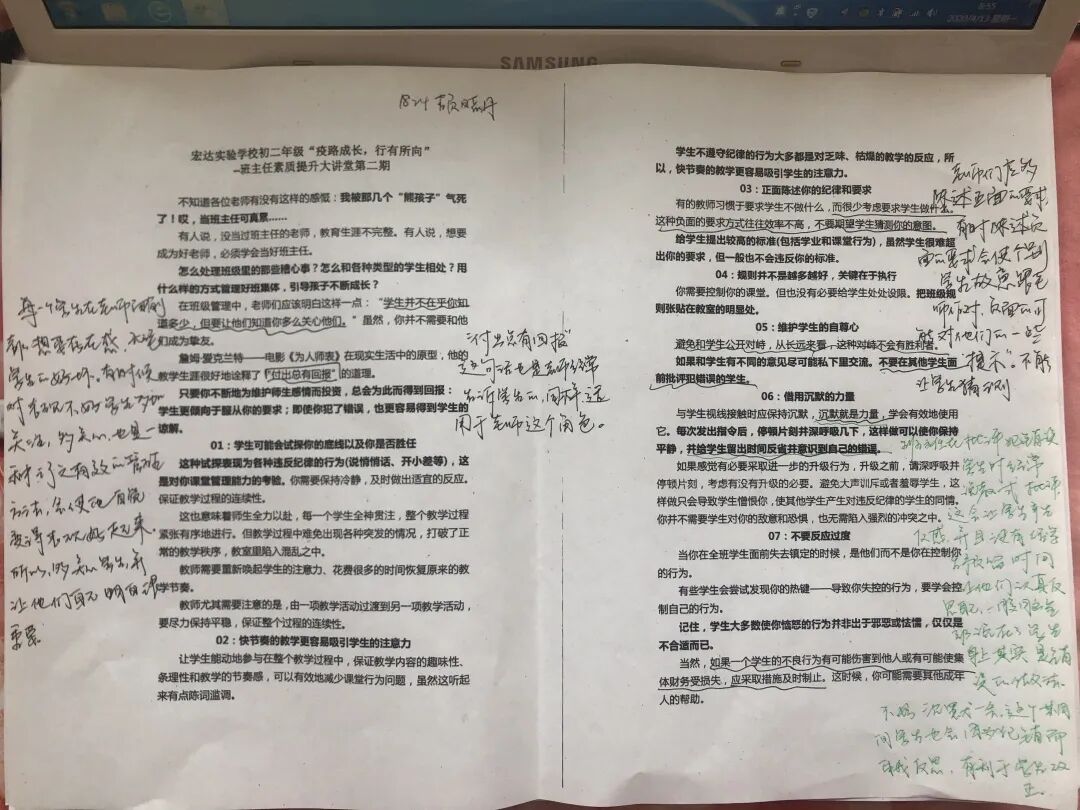 SAMSUNG
8:55
2020/4/13 星期一
宏达实验学校初二年级“疫路成长，行有所向”
–班主任素质提升大讲堂第二期
不知道各位老师有没有这样的感慨：我被那几个“熊孩子”气死
了！哎，当班主任可真累……
有人说，没当过班主任的老师，教育生涯不完整。有人说，想要
成为好老师，必须学会当好班主任。
怎么处理班级里的那些糟心事？怎么和各种类型的学生相处？用
什么样的方式管理好班集体，引导孩子不断成长？
在班级管理中，老师们应该明白这样一点：“学生并不在乎你知
道多少，但要让他们知道你多么关心他们。”虽然，你并不需要和他
们成为挚友。
詹姆·爱克兰特——电影《为人师表》在现实生活中的原型，他的
教学生涯很好地诠释了「付出总有回报」的道理。
只要你不断地为维护师生感情而投资，总会为此而得到回报：
学生更倾向于服从你的要求；即使你犯了错误，也更容易得到学生的
谅解。
01：学生可能会试探你的底线以及你是否胜任
这种试探表现为各种违反纪律的行为(说悄悄话、开小差等)，这
是对你课堂管理能力的考验。你需要保持冷静，及时做出适宜的反应。
保证教学过程的连续性。
这也意味着师生全力以赴，每一个学生全神贯注，整个教学过程
紧张有序地进行。但教学过程中难免出现各种突发的情况，打破了正
常的教学秩序，教室里陷入混乱之中。
教师需要重新唤起学生的注意力、花费很多的时间恢复原来的教
学节奏。
教师尤其需要注意的是，由一项教学活动过渡到另一项教学活动，
要尽力保持平稳，保证整个过程的连续性。
02：快节奏的教学更容易吸引学生的注意力
让学生能动地参与在整个教学过程中，保证教学内容的趣味性、
条理性和教学的节奏感，可以有效地减少课堂行为问题，虽然这听起
来有点陈词滥调。
每一个学生在老师面前
都想要存在感，
学生的好坏。有时候
关注，多关心，也是一
种行之有效的管理
方法，会使他自觉
变得表现好起来。
所以，多关心学生，并
让他们自己明白很
重要
“付出总有回报”
这句话也是老师经常
告诉学生的，同样适
用于老师这个角色。
学生不遵守纪律的行为大多都是对乏味、枯燥的教学的反应，所
以，快节奏的教学更容易吸引学生的注意力。
03：正面陈述你的纪律和要求
有的教师习惯于要求学生不做什么，而很少考虑要求学生做什么。
这种负面的要求方式往往效率不高，不要期望学生猜测你的意图。
给学生提出较高的标准(包括学业和课堂行为)，虽然学生很难超
出你的要求，但一般也不会违反你的标准。
04：规则并不是越多越好，关键在于执行
你需要控制你的课堂。但也没有必要给学生处处设限。把班级规
则张贴在教室的明显处。
05：维护学生的自尊心
避免和学生公开对峙，从长远来看，这种对峙不会有胜利者。
如果和学生有不同的意见尽可能私下里交流。不要在其他学生面
前批评犯错误的学生。
06：借用沉默的力量
与学生视线接触时应保持沉默，沉默就是力量，学会有效地使用
它。每次发出指令后，停顿片刻并深呼吸几下，这样做可以使你保持
平静，并给学生留出时间反省并意识到自己的错误。
如果感觉有必要采取进一步的升级行为，升级之前，请深呼吸并
停顿片刻，考虑有没有升级的必要。避免大声训斥或者羞辱学生，这
样做只会导致学生憎恨你，使其他学生产生对违反纪律的学生的同情。
你并不需要学生对你的敌意和恐惧，也无需陷入强烈的冲突之中。
07：不要反应过度
当你在全班学生面前失去镇定的时候，是他们而不是你在控制你
的行为。
有些学生会尝试发现你的热键——导致你失控的行为，要学会控
制自己的行为。
记住，学生大多数使你愤怒的行为并非出于邪恶或怯懦，仅仅是
不合适而已。
当然，如果一个学生的不良行为有可能伤害到他人或有可能使集
体财务受损失，应采取措施及时制止。这时候，你可能需要其他成年
人的帮助。
老师们应多
陈述正面的要求
有时陈述负
面的要求会使个别
学生故意跟老
师作对，
对他们的一些
“提示”不能
让学生猜测
学生时经常
这会让学生产生
反感，并且没有给学
生留出时间
让他们认真反
思自己，
学生
身上其实是错误
的做法
不妨沉默一会，这个
间学生也会因为犯错而
自我反思，有利于学生改
正。